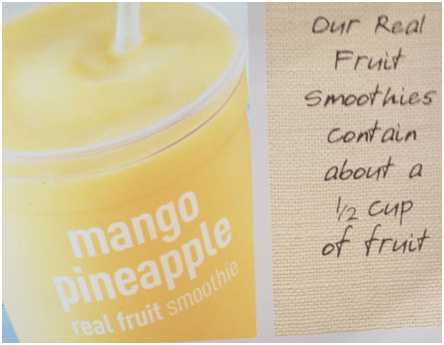 mango
pineapple
real fruit smoothie
Our Real
Fruit
Smoothies
contain
about a
1/2 cup
of fruit